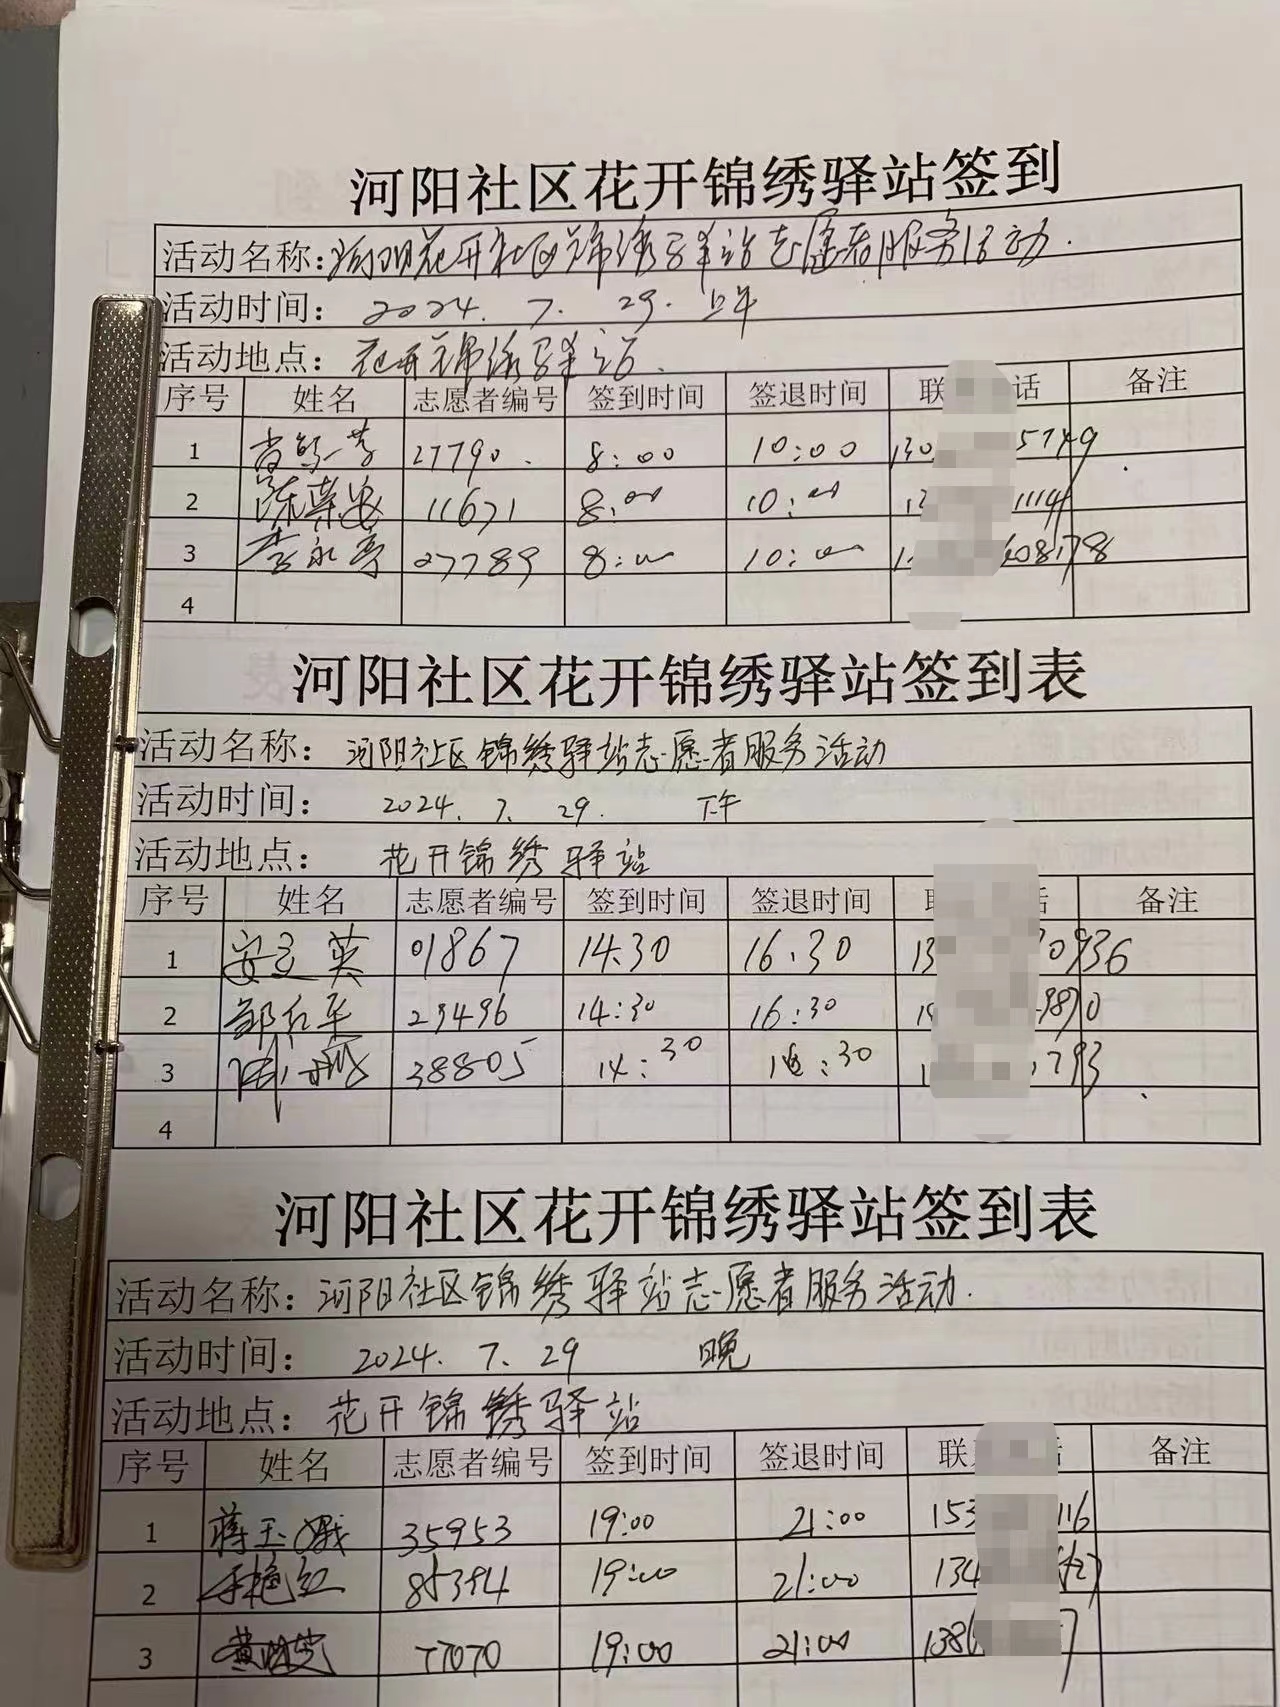 河阳社区花开锦绣驿站签到
活动名称:河阳花开社区锦绣驿站志愿者服务活动.
活动时间: 2024. 7. 29. 上午
活动地点: 花开锦绣驿站.
序号 姓名 志愿者编号 签到时间 签退时间 联 话 备注
1 27790. 8:00 10:00 130 5749
2 陈荣 11671 8:00 10:00 1114
3 李永亭 27789 8:00 10:00 08178
4
河阳社区花开锦绣驿站签到表
活动名称: 河阳社区锦绣驿站志愿者服务活动
活动时间: 2024. 7. 29. 下午
活动地点: 花开锦绣驿站
序号 姓名 志愿者编号 签到时间 签退时间 备注
1 安立英 01867 14:30 16:30 13 0936
2 邹红军 29496 14:30 16:30 9890
3 38805 14:30 16:30 793
4
河阳社区花开锦绣驿站签到表
活动名称: 河阳社区锦绣驿站志愿者服务活动.
活动时间: 2024. 7. 29 晚
活动地点: 花开锦绣驿站
序号 姓名 志愿者编号 签到时间 签退时间 联 备注
1 蒋玉娥 35953 19:00 21:00 153 116
2 85394 19:00 21:00 134
3 77070 19:00 21:00 138 7